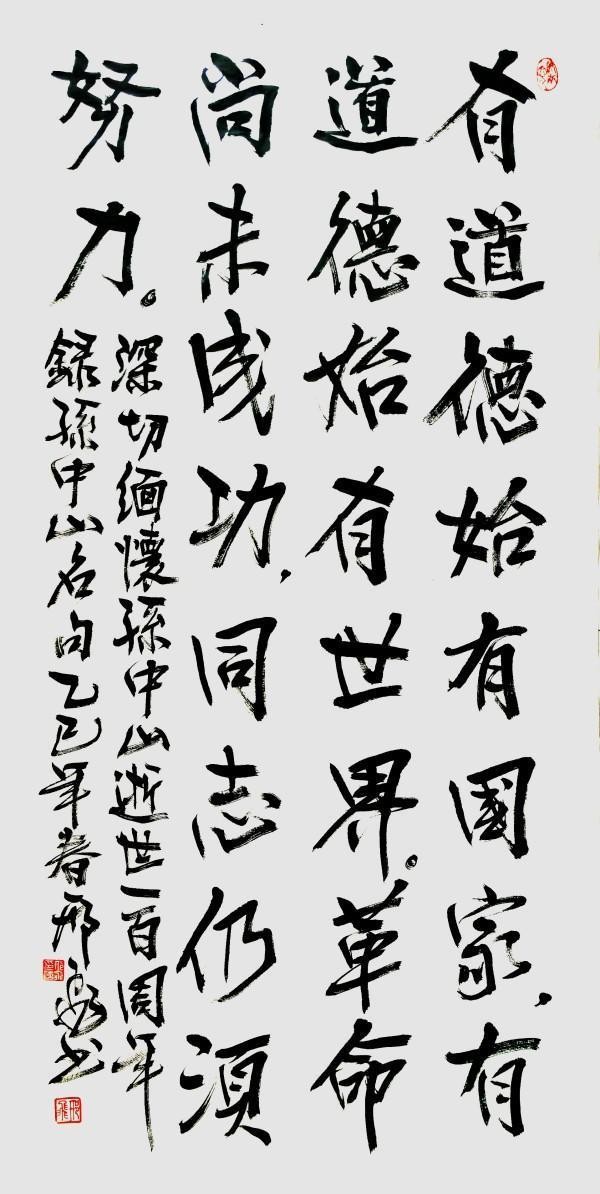 有道德始有國家，有
道德始有世界。革命
尚未成功，同志仍須
努力。
深切缅懷孫中山逝世一百周年
録孫中山名句乙巳年春邢
书